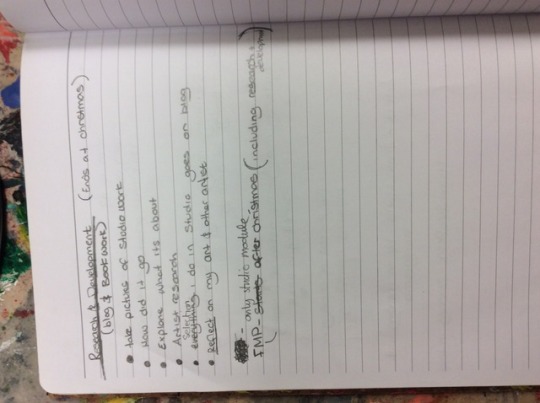 Research & Development (Ends at christmas)
(blog & Book work)
• take pictures of studio work
• How did it go
• Explane what its about
• Artist research
Selection
• everything i do in studio goes on blog
• Reflect on my art & other artist
- only studio module
FMP - starts after christmas (including research &
development)